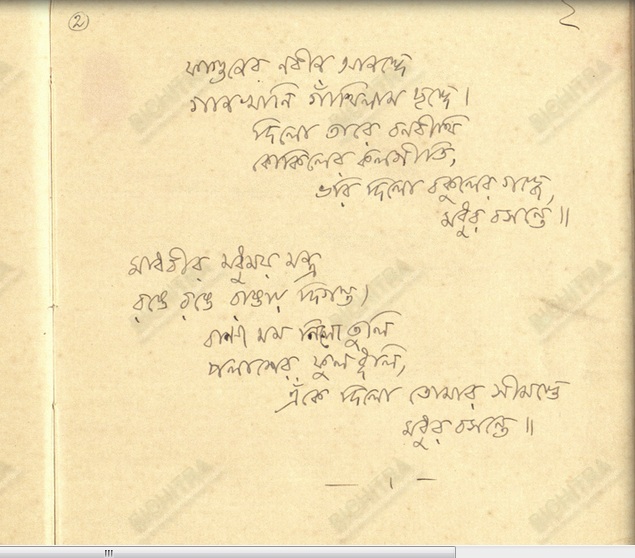 ②
২
ফাগুনের নবীন আনন্দে
গানখানি গাঁথিলাম ছন্দে।
দিলো তারে বনবীথি
কোকিলের কলগীতি,
ভরি দিলো বকুলের গন্ধে,
মধুর বসন্তে॥
মাধবীর মধুময় মন্ত্র
রঙে রঙে রাঙায় দিগন্ত।
বাণী মম নিলো তুলি
পলাশের ফুলধূলি,
এঁকে দিলো তোমার সীমন্তে
মধুর বসন্তে॥
BICHITRA